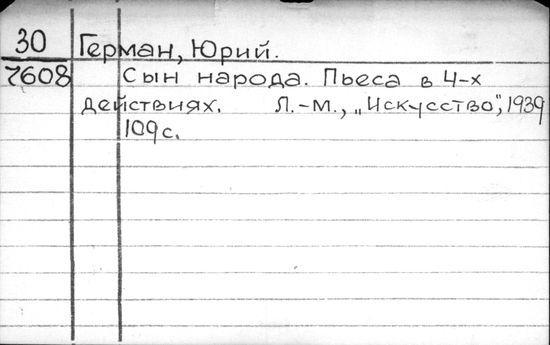 30 Герман, Юрий.
7608 Сын народа. Пьеса в 4-х
действиях. Л.-М., „Искусство", 1939
109 с.